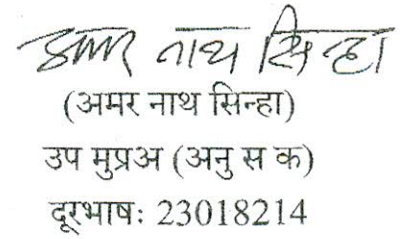 अमर नाथ सिन्हा
(अमर नाथ सिन्हा)
उप मुप्रअ (अनु स क)
दूरभाषः 23018214